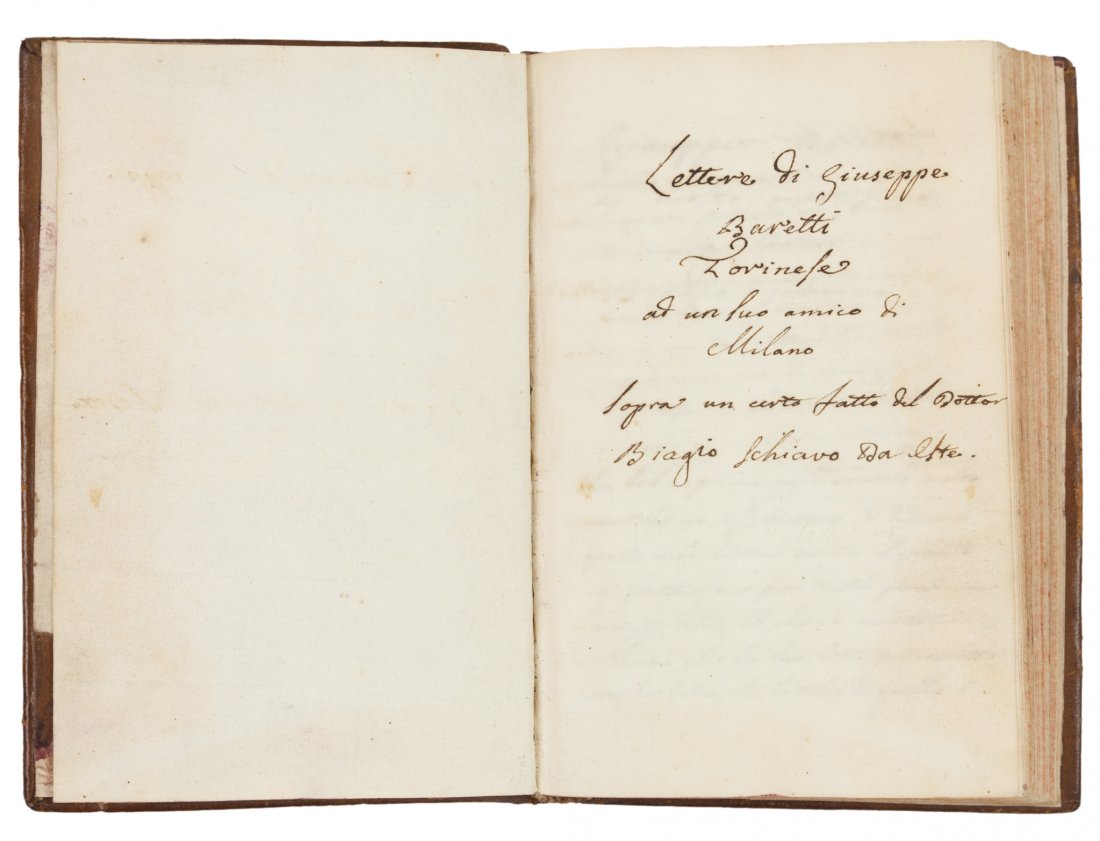 Lettere di Giuseppe
Baretti
Torinese
ad un suo amico di
Milano
sopra un certo fatto del Dottor
Biagio Schiavo da Este.